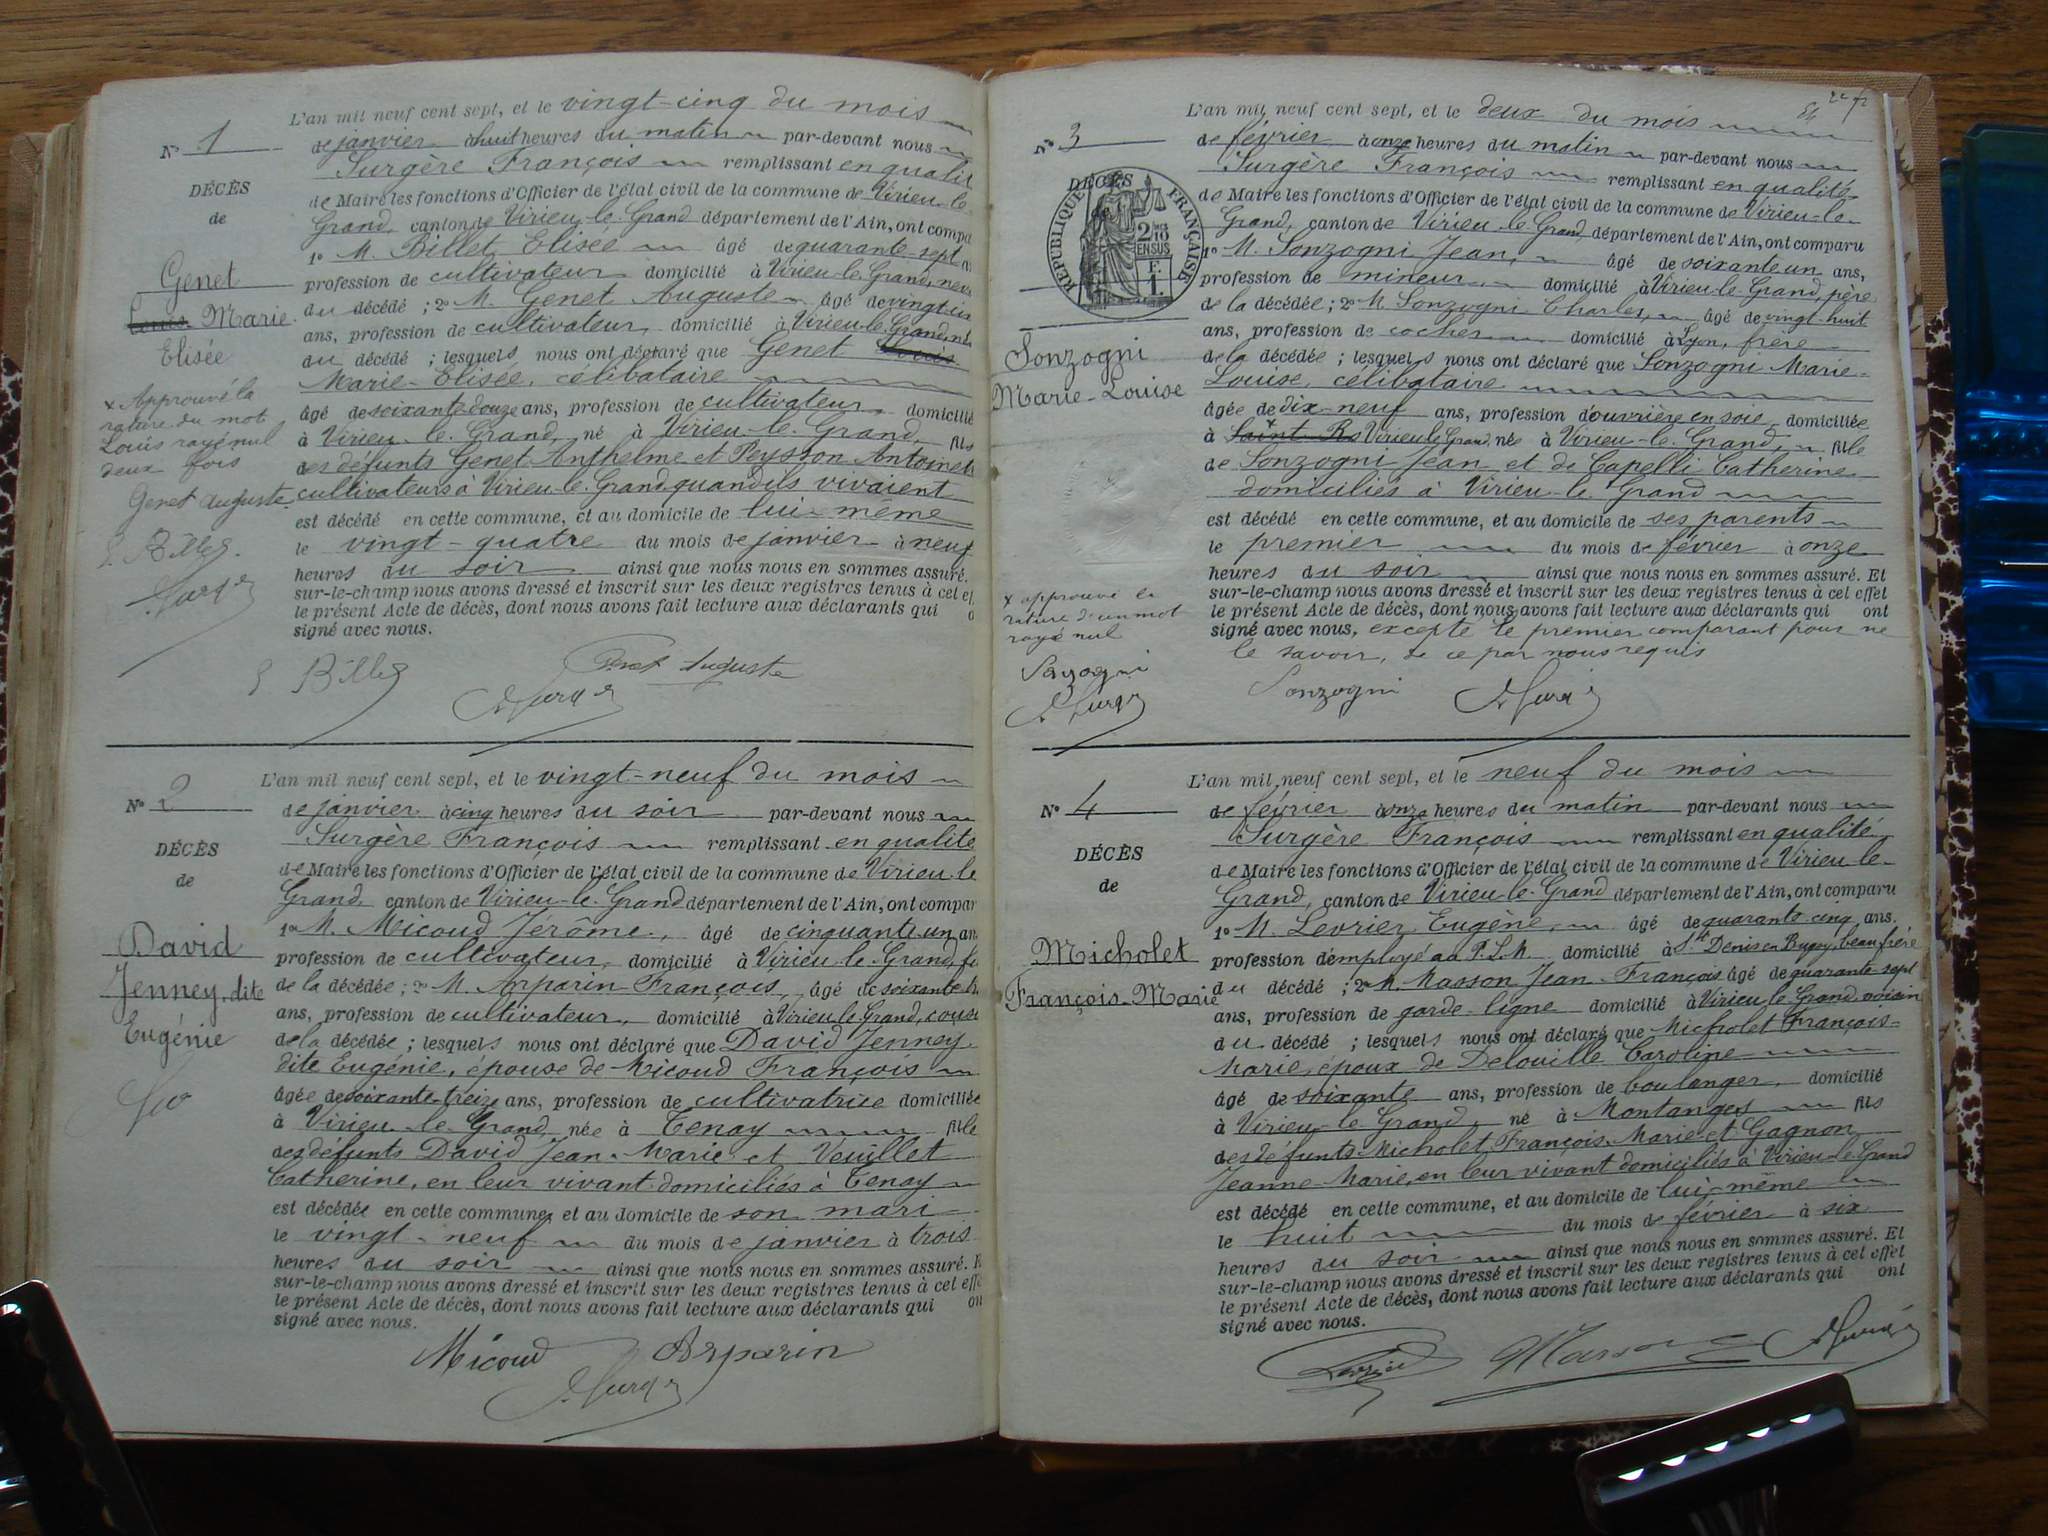 N° 1
DÉCÈS
de
Genet
Louis Marie
Elisée
x Approuvé la
rature du mot
Louis rayé nul
deux fois
Genet Auguste
E. Billet
L'an mil neuf cent sept, et le vingt-cinq du mois
de janvier à huit heures du matin par-devant nous
Surgère François remplissant en qualit
de Maire les fonctions d'Officier de l'état civil de la commune de Virieu-le-
Grand, canton de Virieu-le-Grand département de l'Ain, ont compa
1° M. Billet Elisée âgé de quarante-sept
profession de cultivateur domicilié à Virieu-le-Grand, neve
du décédé ; 2° M. Genet Auguste âgé de vingt-
ans, profession de cultivateur, domicilié à Virieu-le-Grand,
du décédé ; lesquels nous ont déclaré que Genet Louis
Marie-Elisée, célibataire
âgé de soixante-douze ans, profession de cultivateur domicilié
à Virieu-le-Grand, né à Virieu-le-Grand, fils
des défunts Genet Anthelme et Peysson Antoinet
cultivateurs à Virieu-le-Grand quand ils vivaient
est décédé en cette commune, et au domicile de lui-même
le vingt-quatre du mois de janvier à neuf
heures du soir ainsi que nous nous en sommes assuré.
sur-le-champ nous avons dressé et inscrit sur les deux registres tenus à cet ef
le présent Acte de décès, dont nous avons fait lecture aux déclarants qui o
signé avec nous.
E Billet Genet Auguste
N° 2
DÉCÈS
de
David
Jenney, dite
Eugénie
L'an mil neuf cent sept, et le vingt-neuf du mois
de janvier à cinq heures du soir par-devant nous
Surgère François remplissant en qualité
de Maire les fonctions d'Officier de l'état civil de la commune de Virieu-le
Grand, canton de Virieu-le-Grand département de l'Ain, ont compar
1° M. Micoud Jérôme, âgé de cinquante-un an
profession de cultivateur, domicilié à Virieu-le-Grand,
de la décédée ; 2° M. Arparin François, âgé de soixante
ans, profession de cultivateur, domicilié à Virieu-le-Grand, cousi
de la décédée ; lesquels nous ont déclaré que David Jenney
dite Eugénie, épouse de Micoud François
âgée de soixante-treize ans, profession de cultivatrice domiciliée
à Virieu-le-Grand née à Tenay fille
des défunts David Jean-Marie et Veuillet
Catherine, en leur vivant domiciliés à Tenay
est décédée en cette commune, et au domicile de son mari
le vingt-neuf du mois de janvier à trois
heures du soir ainsi que nous nous en sommes assuré. E
sur-le-champ nous avons dressé et inscrit sur les deux registres tenus à cet effe
le présent Acte de décès, dont nous avons fait lecture aux déclarants qui on
signé avec nous.
Micoud Arparin
N° 3
DÉCÈS
RÉPUBLIQUE FRANÇAISE
2/10
EN SUS
F.
1.
Sonzogni
Marie-Louise
x approuvé la
rature d'un mot
rayé nul
Sonzogni
L'an mil neuf cent sept, et le deux du mois
de février à onze heures du matin par-devant nous
Surgère François remplissant en qualité
de Maire les fonctions d'Officier de l'état civil de la commune de Virieu-le-
Grand, canton de Virieu-le-Grand, département de l'Ain, ont comparu
1° M. Sonzogni Jean, âgé de soixante un ans,
profession de mineur, domicilié à Virieu-le-Grand, père
de la décédée ; 2° M. Sonzogni Charles, âgé de vingt-huit
ans, profession de cocher domicilié à Lyon, frère
de la décédée ; lesquels nous ont déclaré que Sonzogni Marie-
Louise, célibataire
âgée de dix-neuf ans, profession d'ouvrière en soie domiciliée
à Saint-R Virieu le Grand, née à Virieu-le-Grand, fille
de Sonzogni Jean et de Capelli Catherine
domiciliés à Virieu-le-Grand
est décédé en cette commune, et au domicile de ses parents
le premier du mois de février à onze
heures du soir ainsi que nous nous en sommes assuré. Et
sur-le-champ nous avons dressé et inscrit sur les deux registres tenus à cet effet
le présent Acte de décès, dont nous avons fait lecture aux déclarants qui ont
signé avec nous, excepté le premier comparant pour ne
le savoir, de ce par nous requis
Sonzogni
N° 4
DÉCÈS
de
Micholet
François-Marie
L'an mil neuf cent sept, et le neuf du mois
de février à onze heures du matin par-devant nous
Surgère François remplissant en qualité
de Maire les fonctions d'Officier de l'état civil de la commune de Virieu-le-
Grand, canton de Virieu-le-Grand département de l'Ain, ont comparu
1° M. Levrier Eugène, âgé de quarante-cinq ans,
profession d'employé au P.L.M. domicilié à St Denis en Bugey, beau frère
du décédé ; 2° M. Masson Jean-François âgé de quarante-sept
ans, profession de garde-ligne domicilié à Virieu-le-Grand, voisin
du décédé ; lesquels nous ont déclaré que Micholet François-
Marie, époux de Delouille Caroline
âgé de soixante ans, profession de boulanger, domicilié
à Virieu-le-Grand, né à Montanges fils
des défunts Micholet François-Marie et Gagnon
Jeanne-Marie, en leur vivant domiciliés à Virieu-le-Grand
est décédé en cette commune, et au domicile de lui-même
le huit du mois de février à six
heures du soir ainsi que nous nous en sommes assuré. Et
sur-le-champ nous avons dressé et inscrit sur les deux registres tenus à cet effet
le présent Acte de décès, dont nous avons fait lecture aux déclarants qui ont
signé avec nous.
Levrier Masson